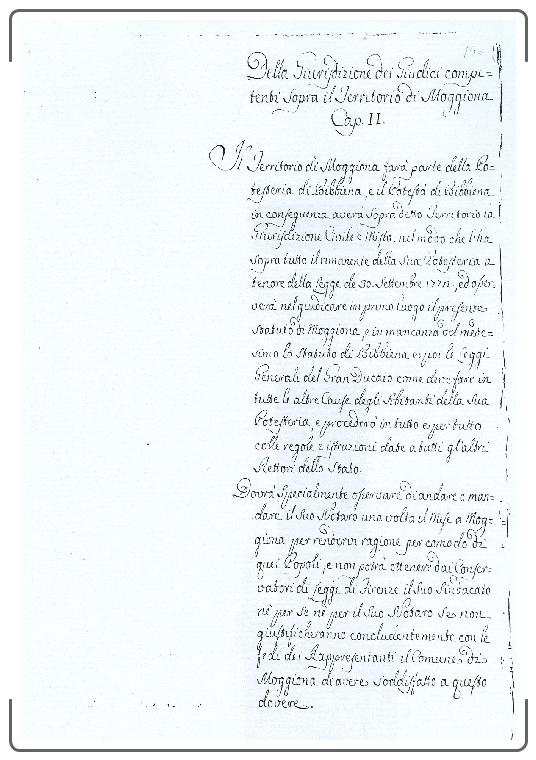 Della Giurisdizione dei Giudici compe=
tenti sopra il Territorio di Moggiona
Cap. II.
Il Territorio di Moggiona farà parte della Po=
testeria di Bibbiena, e il Potestà di Bibbiena
in conseguenza averà sopra detto Territorio la
Giurisdizione Civile e Mista, nel modo che l'ha
sopra tutto il rimanente della Sua Potesteria a
tenore della Legge de 30. Settembre 1772, ed osser
verà nel giudicare in primo luogo il presente
Statuto di Moggiona, e in mancanza del mede=
simo lo Statuto di Bibbiena e poi le Leggi
Generali del Gran Ducato come deve fare in
tutte le altre Cause degli Abitanti della Sua
Potesteria, e procederà in tutto e per tutto
colle regole e istruzioni date a tutti gl'altri
Rettori dello Stato.
Dovrà Specialmente osservare di andare o man=
dare il Suo Notaro una volta il Mese a Mog=
giona per rendervi ragione per comodo di
quei Popoli, e non potrà ottenere dai Conser=
vatori di Leggi di Firenze il Suo Sindacato
nè per se nè per il Suo Notaro se non
giustificheranno concludentemente con le
fedi dei Rappresentanti il Comune di
Moggiona di avere soddisfatto a questo
dovere.